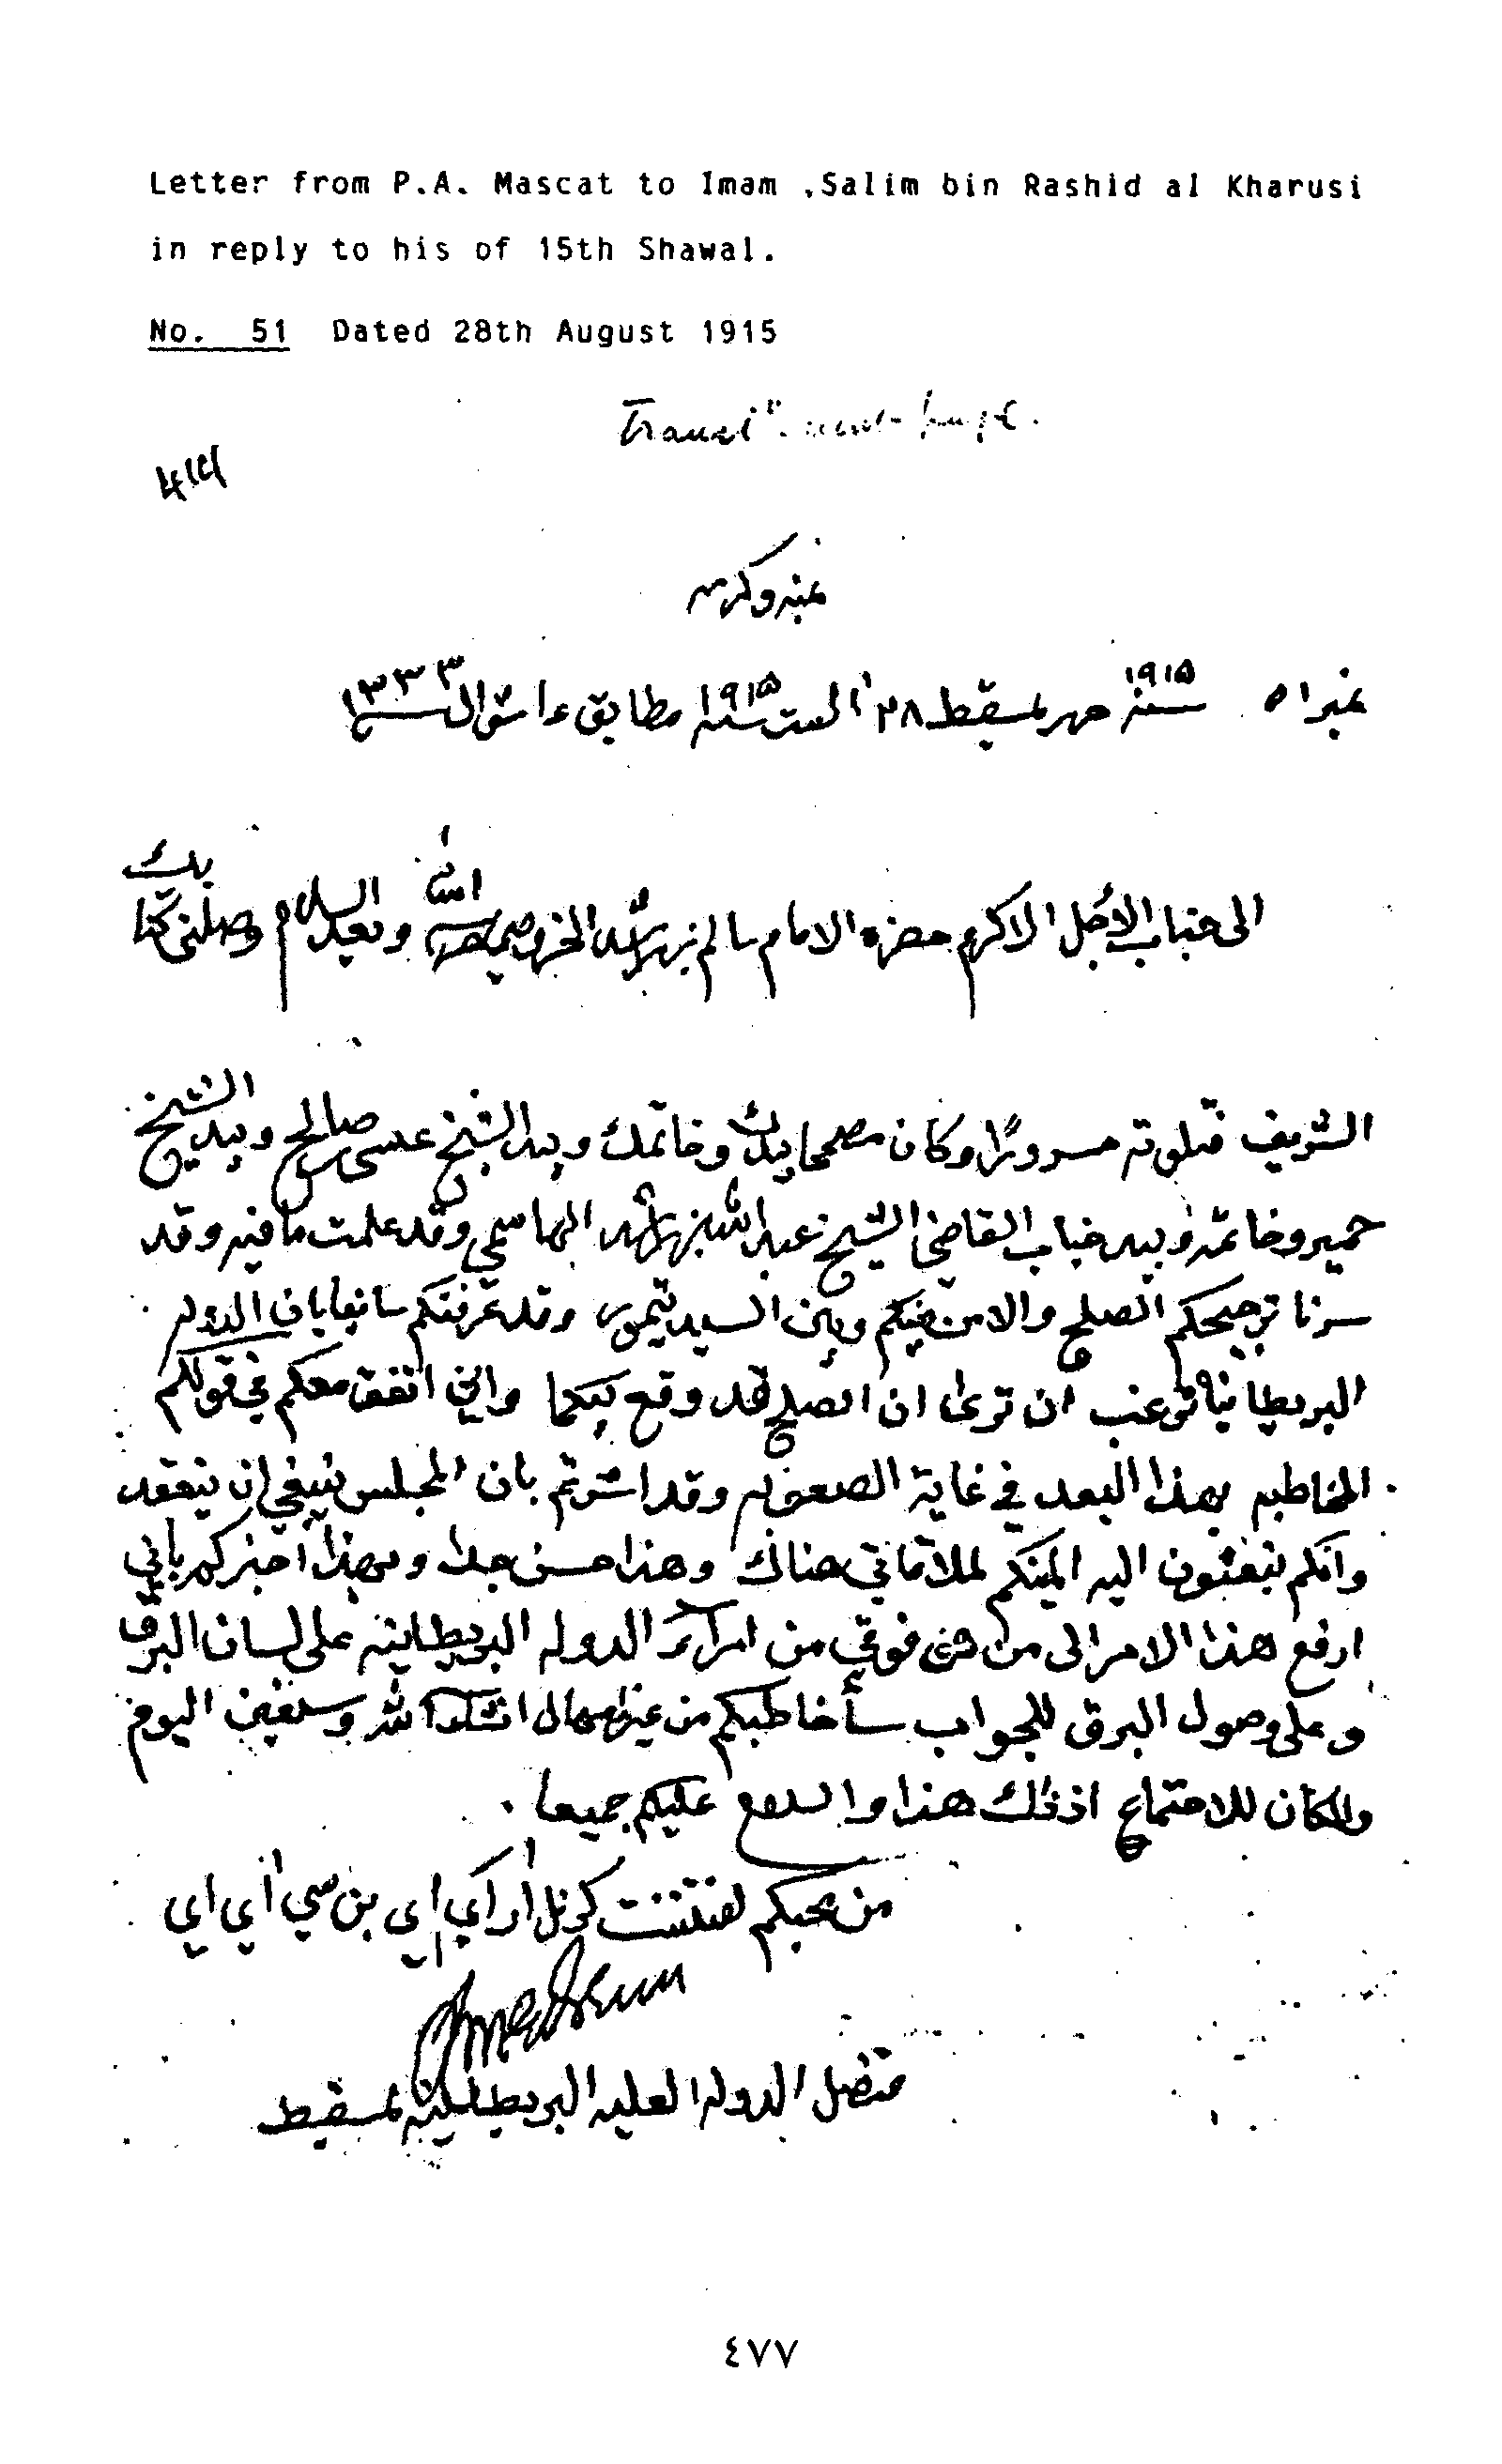 Letter from P.A. Mascat to Imam ,Salim bin Rashid al Kharusi
in reply to his of 15th Shawal.
No. 51 Dated 28th August 1915
بمنه وكرمه
نمبر ٥١ سنة ١٩١٥ حرر بمسقط ٢٨ اگست سنة ١٩١٥ مطابق شوال سنة ١٣٣٣
الى جناب الاجل الاكرم حضرة الامام سالم بن راشد الخروصي سلمه الله وبعد السلام وصلني كتابك
الشريف فتلوته مسرورًا وكان مصححا بيدك وخاتمك وبيد الشيخ عيسى بن صالح وبيد الشيخ
حمير وخاتمه وبيد جناب القاضي الشيخ عبدالله بن راشد الهاشمي وقد علمت ما فيه وقد
سرنا ترجيحكم الصلح والامن بينكم وبين السيد تيمور وقد عرفتكم سابقا بان الدولة
البريطانية ترغب ان ترى ان الصلح قد وقع بينكما واني اتفق معكم في قولكم
المخاطبه بهذا البعد في غاية الصعوبه وقد اشرتم بان المجلس ينبغي ان ينعقد
وانكم تبعثون اليه امينكم لملاقاتي هناك وهذا حسن جدا وبهذا اخبركم باني
ارفع هذا الامر الى من هو فوقي من امراء الدولة البريطانيه على لسان البرق
وعلى وصول البرق للجواب سأخاطبكم من غير اهمال انشاء الله وسنعين اليوم
والمكان للاجتماع اذ ذلك هذا والسلام عليكم جميعا .
من محبكم لفتننت كرنل ار اي اي بن سي اي اي
قنصل الدولة العليه البريطانية بمسقط
٤٧٧